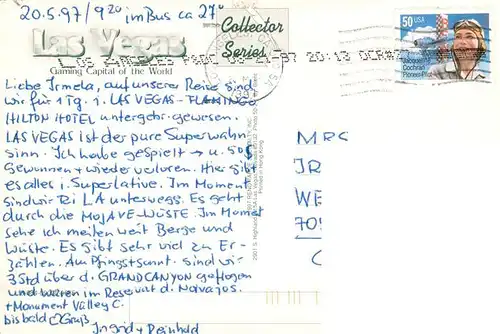 20.5.97/9²⁰ im Bus ca 27°
Las Vegas
Gaming Capital of the World
Collector
Series
LOS ANGELES P&DC 05-21-97 20:13 OCR#
50 USA
Jacqueline
Cochran
Pioneer Pilot
Liebe Irmela, auf unserer Reise sind
wir für 1 Tg. i. LAS VEGAS - FLAMINGO
HILTON HOTEL untergebr. gewesen.
LAS VEGAS ist der pure Superwahn
sinn. Ich habe gespielt → u. 50$
gewonnen + wieder verloren. Hier gibt
es alles i. Superlative. Im Moment
sind wir bei LA unterwegs. Es geht
durch die MOJAVE-WÜSTE. Im Moment
sehe ich meilenweit Berge und
Wüste. Es gibt sehr viel zu Er-
zählen. Am Pfingstsonnt. sind wir
3 Std über d. GRAND CANYON geflogen
und waren im Reservat d. Navajos.
+ Monument Valley C.
bis bald Gruß
Ingrid + Reinhold
MRS
IR
WE
709
C